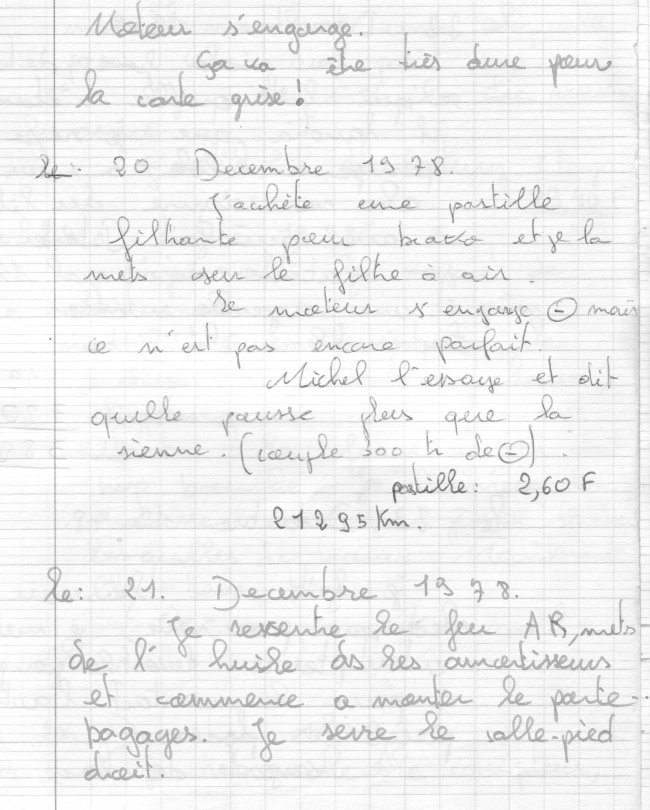 Moteur s'engorge.
Ça va être très dure pour
la carte grise !
le: 20 Decembre 1978.
J'achète une pastille
filtrante pour bravo et je la
mets sur le filtre à air.
Le moteur s'engorge ⊖ mais
ce n'est pas encore parfait.
Michel l'essaye et dit
qu'elle pousse plus que la
sienne. (couple 300 tr de ⊖).
pastille: 2,60 F
21295 Km.
le: 21. Decembre 1978.
Je ressentre le feu AR, mets
de l'huile ds les amortisseurs
et commence a monter le porte-
bagages. Je serre le calle-pied
droit.